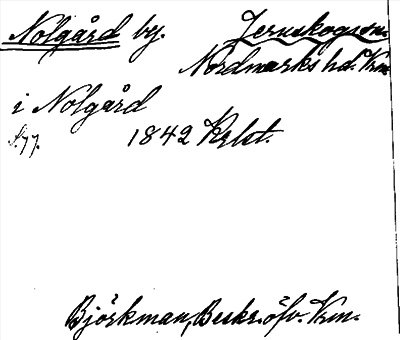 Nolgård by. Jernskogs sn.
Nordmarks hd. Vrm
i Nolgård
S. 77. 1842 Krlbt.
Björkman, Beskr. öfv. Vrm.